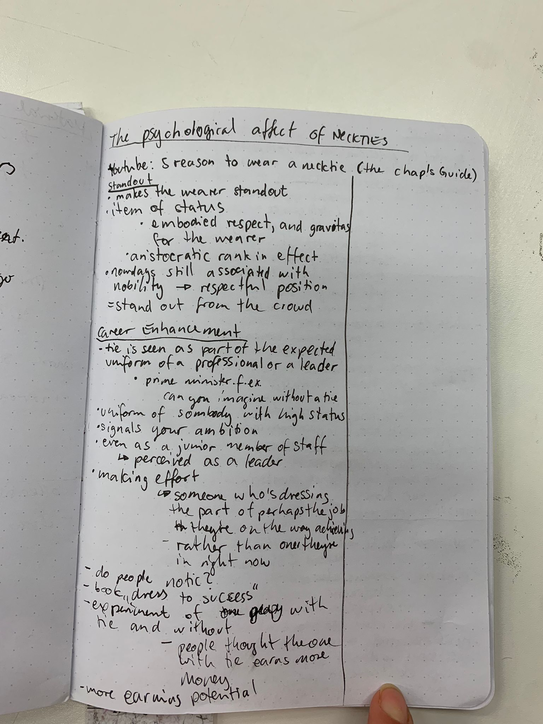 The psychological affect of NECKTIES
Youtube: 5 reason to wear a necktie (the chap's Guide)
Standout
• makes the wearer standout
• item of status
• embodied respect, and gravitas
for the wearer
• aristocratic rank in effect
• nowdays still associated with
nobility → respectful position
= stand out from the crowd
Career Enhancement
- tie is seen as part of the expected
uniform of a professional or a leader
• prime minister f.ex
can you imagine without a tie
• uniform of sombody with high status
• signals your ambition
• even as a junior member of staff
↳ perceived as a leader
• making effort
↳ someone who's dressing
the part of perhaps the job
they're on the way achieving
- rather than one they're
in right now
- do people notic?
- book „dress to success"
- experiment of with
tie and without
- people thought the one
with tie earns more
money
- more earning potential
ent.